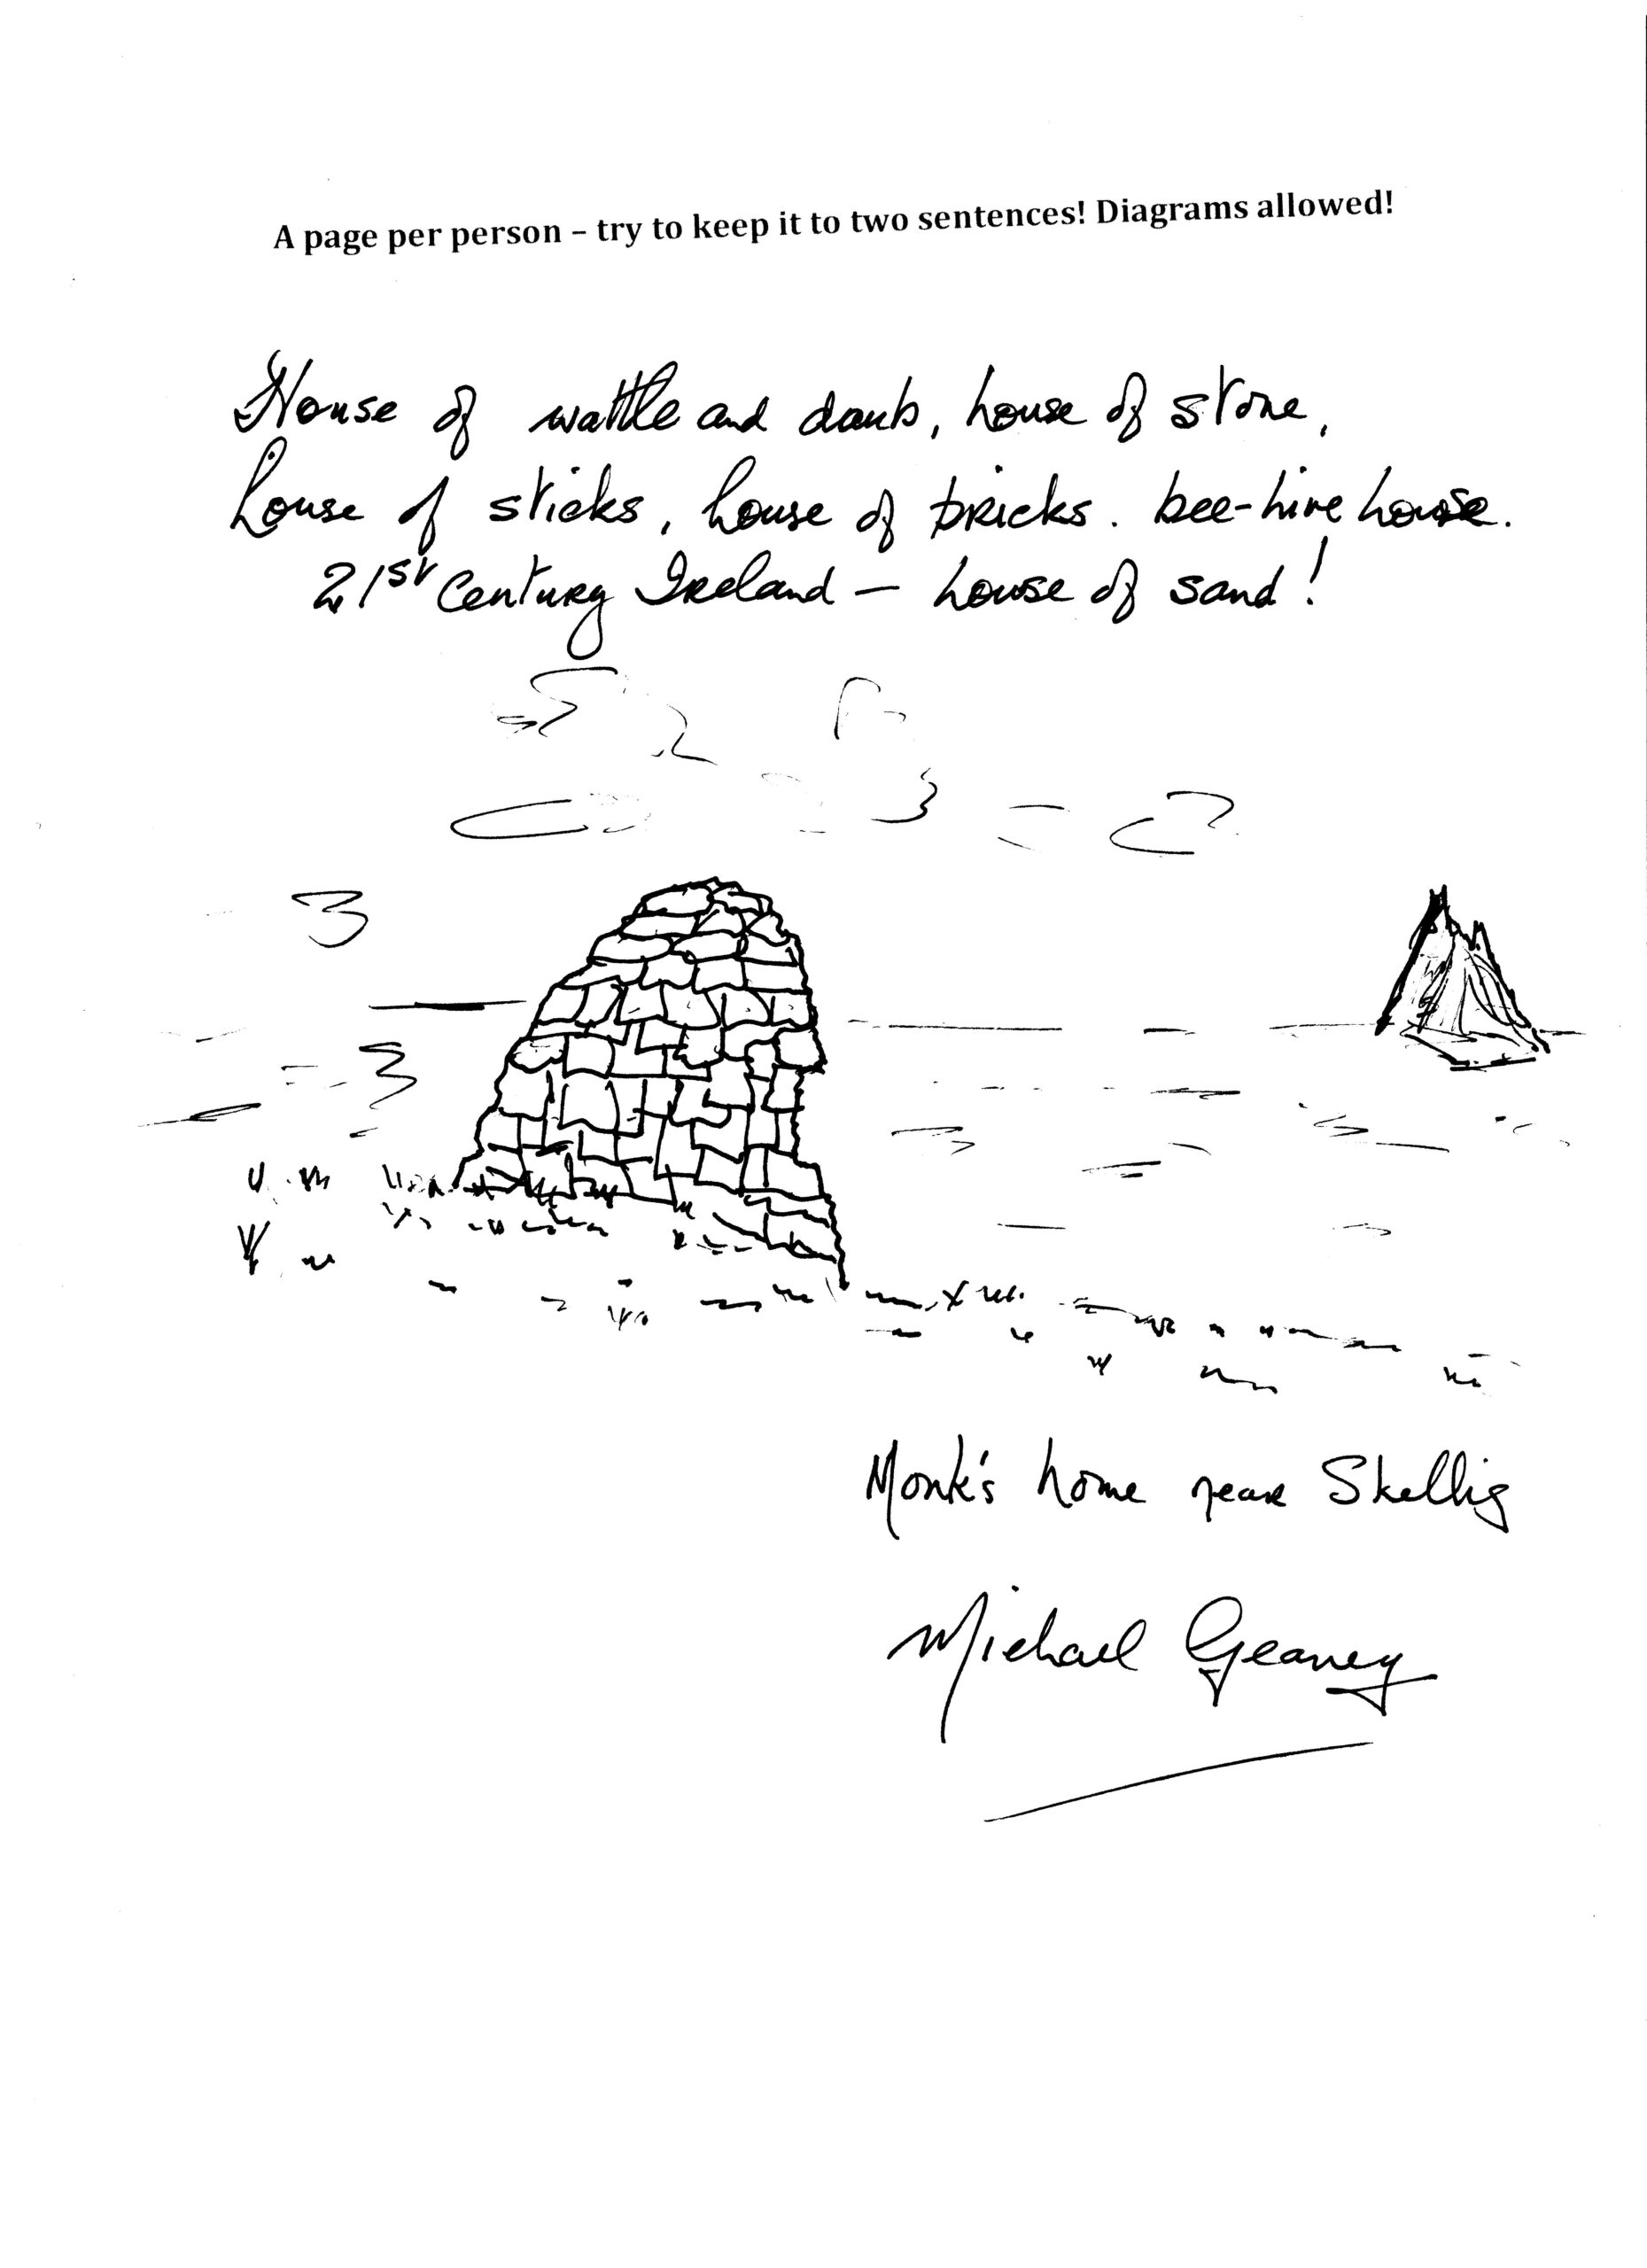 A page per person – try to keep it to two sentences! Diagrams allowed!
House of wattle and daub, house of stone,
house of sticks, house of bricks. bee-hive house.
21st Century Ireland – house of sand!
Monk's home near Skellig
Michael Geaney